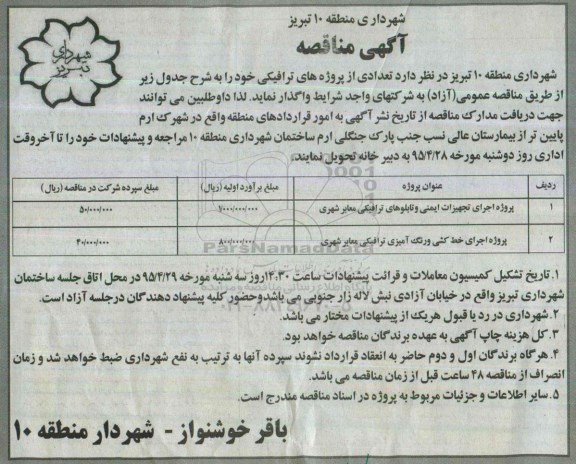 شهرداری منطقه ۱۰ تبریز
آگهی مناقصه
شهرداری تبریز
شهرداری منطقه ۱۰ تبریز در نظر دارد تعدادی از پروژه های ترافیکی خود را به شرح جدول زیر
از طریق مناقصه عمومی(آزاد) به شرکتهای واجد شرایط واگذار نماید. لذا داوطلبین می توانند
جهت دریافت مدارک مناقصه از تاریخ نشر آگهی به امور قراردادهای منطقه واقع در شهرک ارم
پایین تر از بیمارستان عالی نسب جنب پارک جنگلی ارم ساختمان شهرداری منطقه ۱۰ مراجعه و پیشنهادات خود را تا آخروقت
اداری روز دوشنبه مورخه ۹۵/۴/۲۸ به دبیر خانه تحویل نمایند.
ردیف عنوان پروژه مبلغ برآورد اولیه (ریال) مبلغ سپرده شرکت در مناقصه (ریال)
۱ پروژه اجرای تجهیزات ایمنی وتابلوهای ترافیکی معابر شهری ۷۰۰۰/۰۰۰/۰۰۰ ۵۰/۰۰۰/۰۰۰
۲ پروژه اجرای خط کشی ورنگ آمیزی ترافیکی معابر شهری ۸۰۰/۰۰۰/۰۰۰ ۴۰/۰۰۰/۰۰۰
ParsNamadData
۱. تاریخ تشکیل کمیسیون معاملات و قرائت پیشنهادات ساعت ۱۴:۳۰روز سه شنبه مورخه ۹۵/۴/۲۹ در محل اتاق جلسه ساختمان
شهرداری تبریز واقع در خیابان آزادی نبش لاله زار جنوبی می باشدوحضور کلیه پیشنهاد دهندگان درجلسه آزاد است.
۲. شهرداری در رد یا قبول هریک از پیشنهادات مختار می باشد.
۳. کل هزینه چاپ آگهی به عهده برندگان مناقصه خواهد بود.
۴. هرگاه برندگان اول و دوم حاضر به انعقاد قرارداد نشوند سپرده آنها به ترتیب به نفع شهرداری ضبط خواهد شد و زمان
انصراف از مناقصه ۴۸ ساعت قبل از زمان مناقصه می باشد.
۵. سایر اطلاعات و جزئیات مربوط به پروژه در اسناد مناقصه مندرج است.
باقر خوشنواز - شهردار منطقه ۱۰